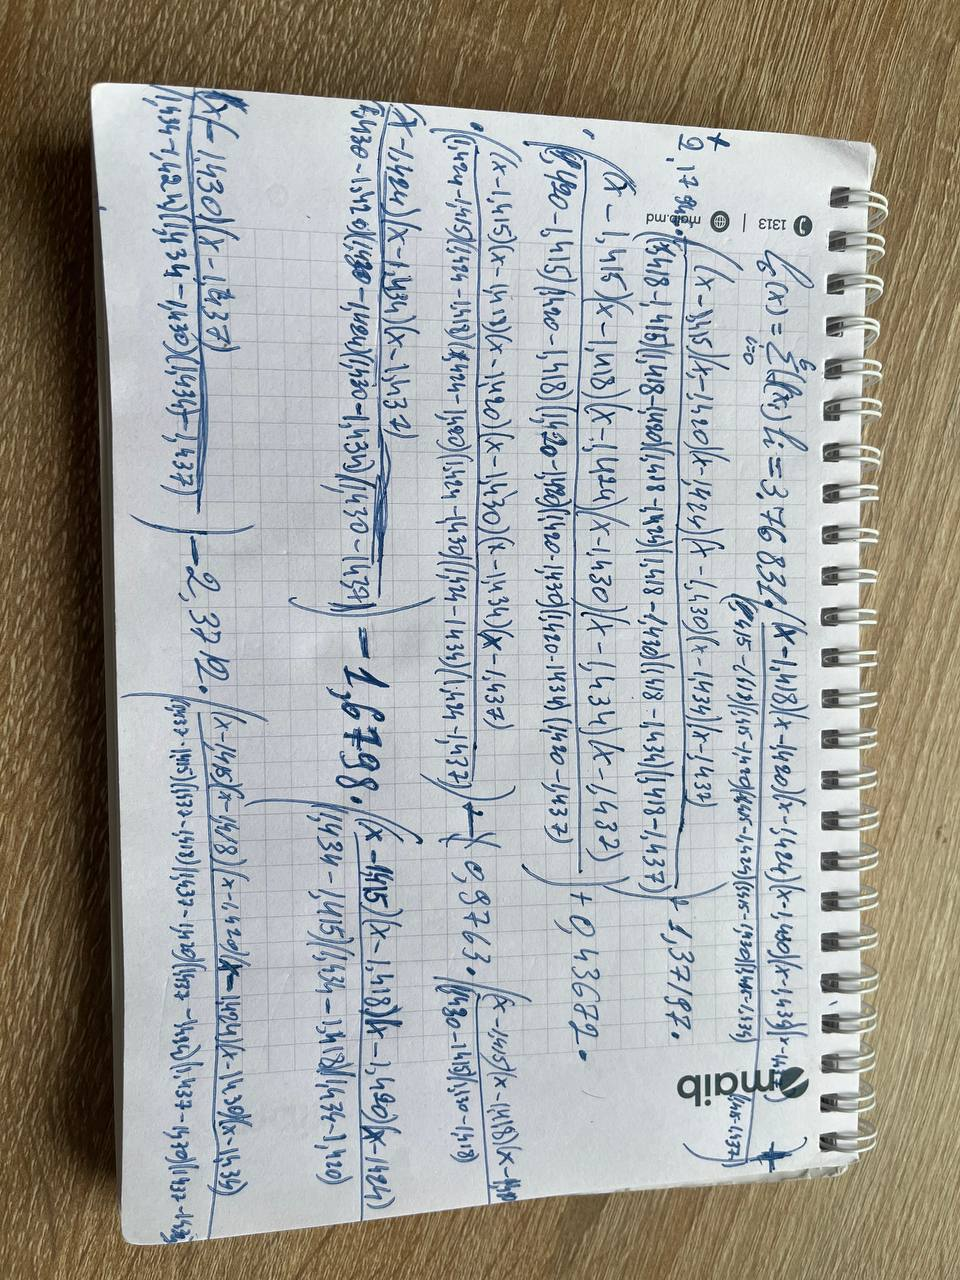 1313 | maib.md
maib
L₆(x) = Σ f(xᵢ) lᵢ = 3,76831 · ((x-1,418)(x-1,420)(x-1,424)(x-1,430)(x-1,434)(x-1,437)
i=0
6
(1,415-1,418)(1,415-1,420)(1,415-1,424)(1,415-1,430)(1,415-1,434)(1,415-1,437)) +
+ 2,1794 · ((x-1,415)(x-1,420)(x-1,424)(x-1,430)(x-1,434)(x-1,437)
(1,418-1,415)(1,418-1,420)(1,418-1,424)(1,418-1,430)(1,418-1,434)(1,418-1,437)) + 1,37197 ·
· ((x-1,415)(x-1,418)(x-1,424)(x-1,430)(x-1,434)(x-1,437)
(1,420-1,415)(1,420-1,418)(1,420-1,420)(1,420-1,430)(1,420-1,434)(1,420-1,437)) + 0,43672 ·
· ((x-1,415)(x-1,418)(x-1,420)(x-1,430)(x-1,434)(x-1,437)
(1,424-1,415)(1,424-1,418)(1,424-1,420)(1,424-1,430)(1,424-1,434)(1,424-1,437)) - 0,8763 · ((x-1,415)(x-1,418)(x-1,420)
(1,430-1,415)(1,430-1,418)
(x-1,424)(x-1,434)(x-1,437)
(1,430-1,420)(1,430-1,424)(1,430-1,434)(1,430-1,437)) - 1,6798 · ((x-1,415)(x-1,418)(x-1,420)(x-1,424)
(1,434-1,415)(1,434-1,418)(1,434-1,420)
(x-1,430)(x-1,437)
(1,434-1,424)(1,434-1,430)(1,434-1,437)) - 2,3712 · ((x-1,415)(x-1,418)(x-1,420)(x-1,424)(x-1,430)(x-1,434)
(1,437-1,415)(1,437-1,418)(1,437-1,420)(1,437-1,424)(1,437-1,430)(1,437-1,434)